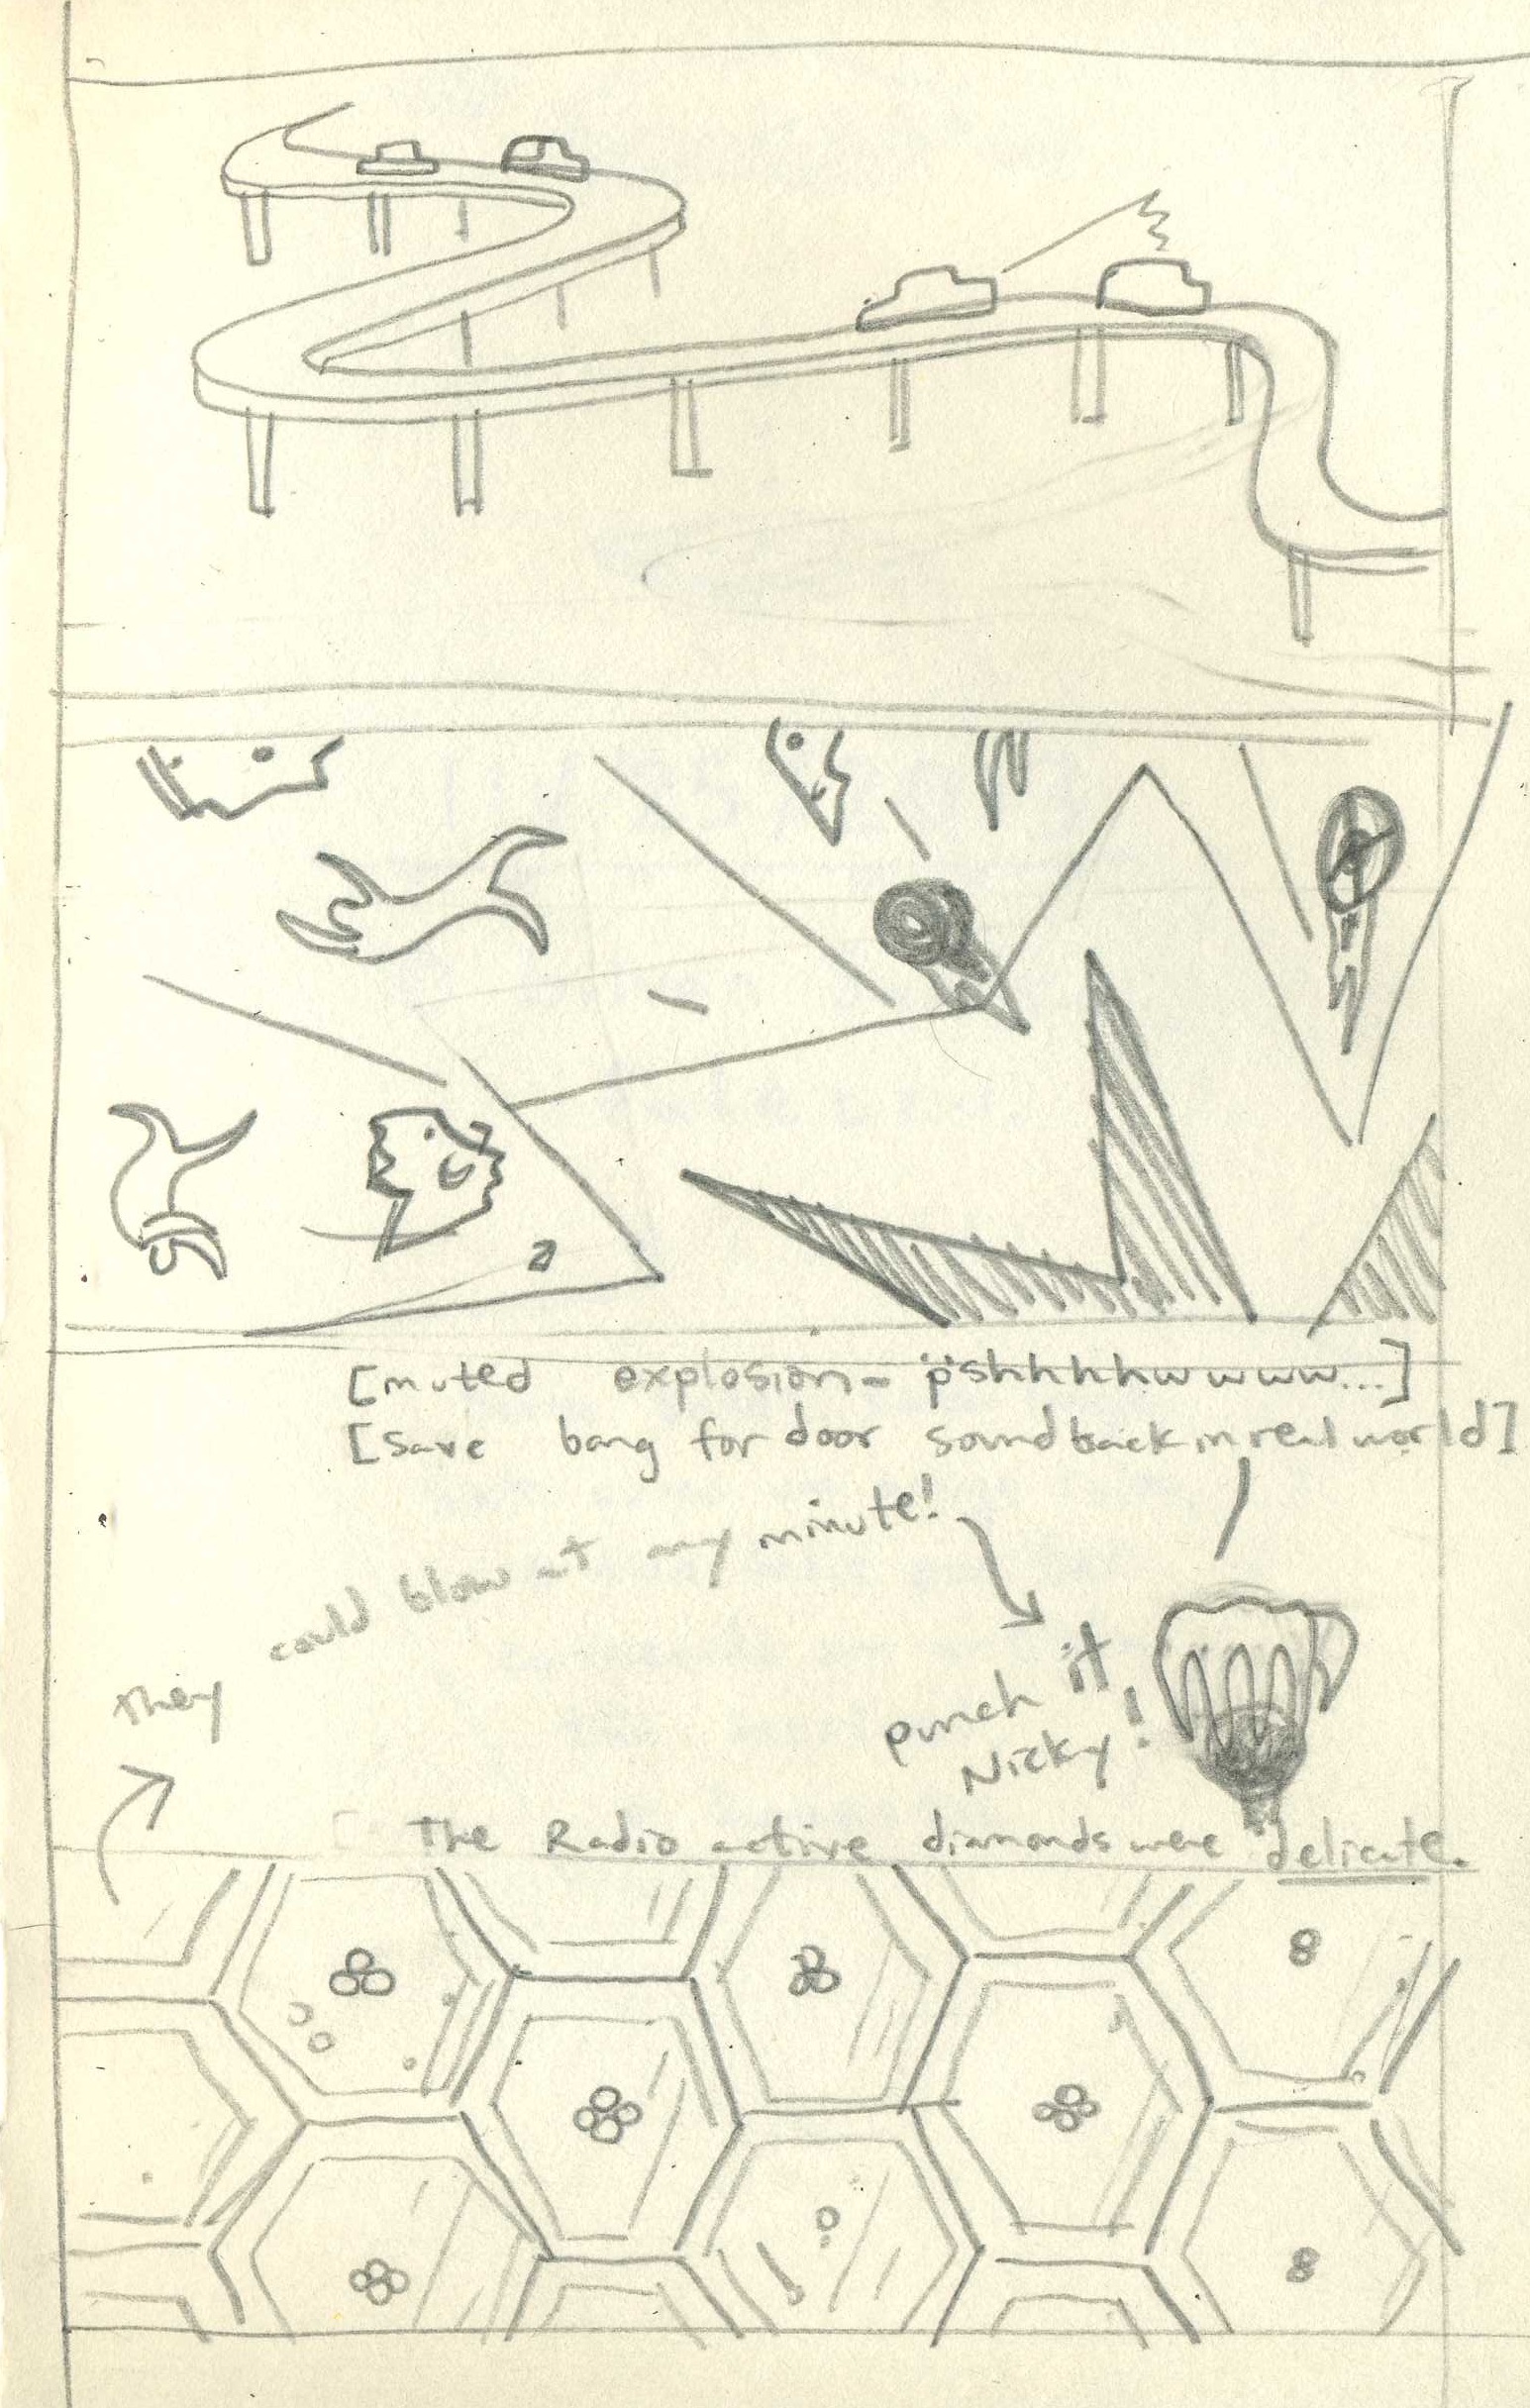 [muted explosion- pshhhhhwwww...]
[save bang for door sound back in real world]
could blow at any minute!
they
punch it
Nicky!
The Radio active diamonds were delicate.